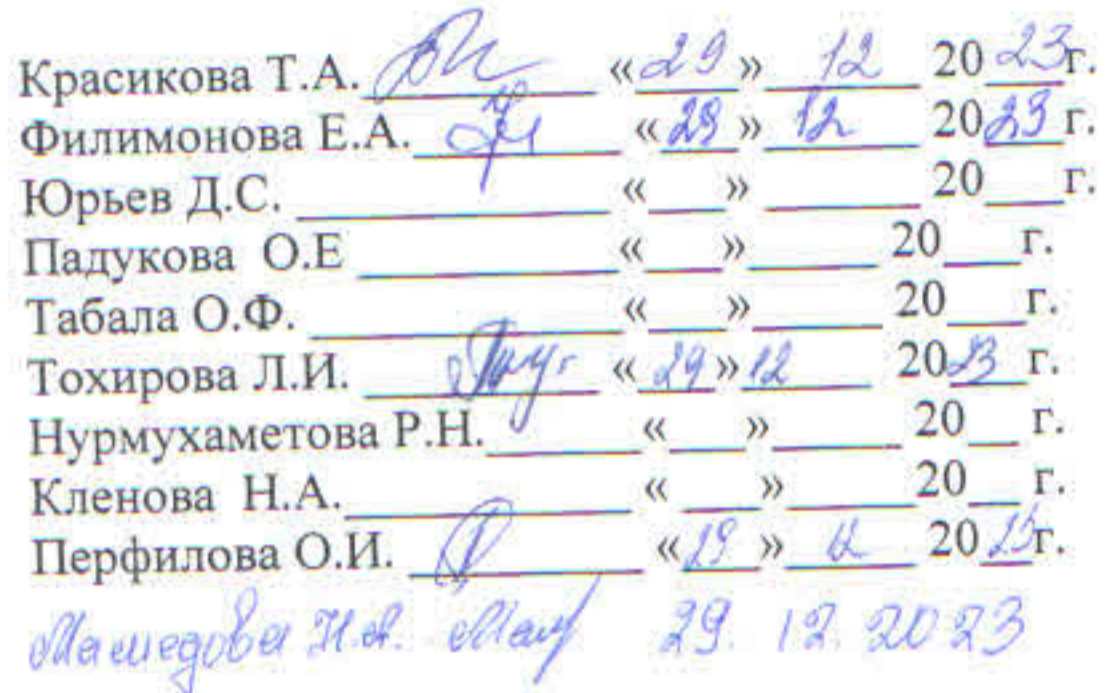 Красикова Т.А. «29» 12 2023г.
Филимонова Е.А. «29» 12 2023 г.
Юрьев Д.С. «___» ______ 20___г.
Падукова О.Е «___» ______ 20___г.
Табала О.Ф. «___» ______ 20___г.
Тохирова Л.И. «29» 12 2023 г.
Нурмухаметова Р.Н. «___» ______ 20___г.
Кленова Н.А. «___» ______ 20___г.
Перфилова О.И. «29» 12 2023г.
Мамедова Н.А. 29. 12. 2023